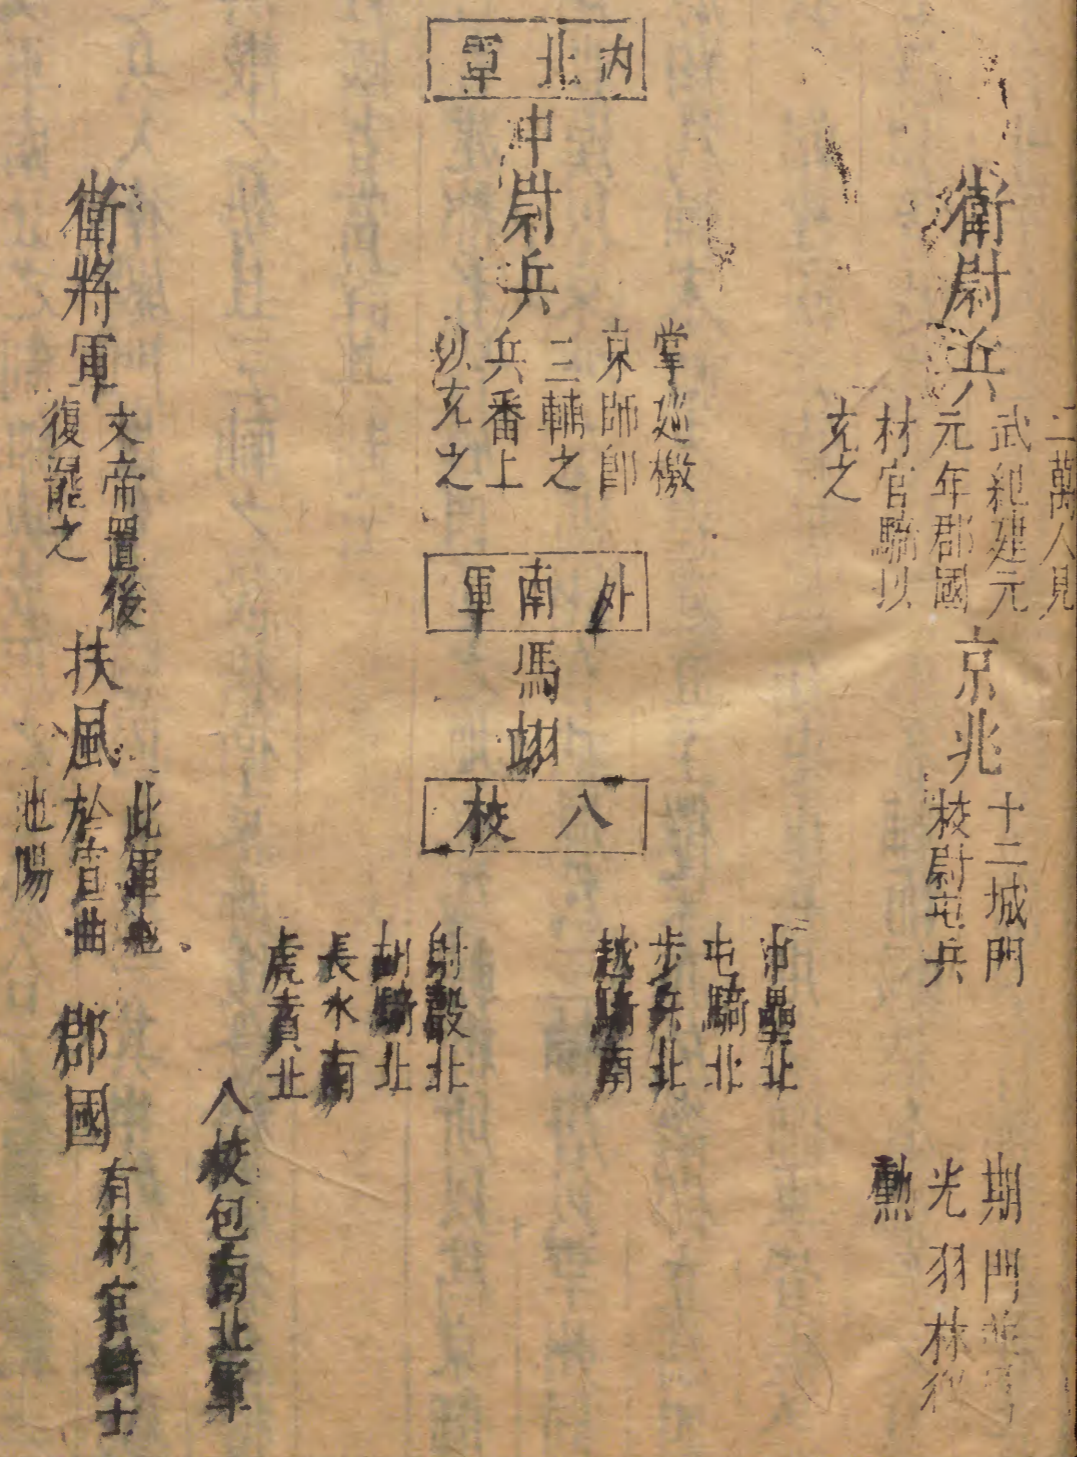 衛尉兵
二萬人見
武紀建元
元年郡國
材官騎以
充之
京兆
十二城門
校尉屯兵
期門
光羽林
勲
內北軍
中尉兵
掌廵檄
京師即
三輔之
兵番上
以充之
外南軍
馮翊
八校
中壘北
屯騎北
步兵北
越騎南
射聲北
胡騎北
長水南
虎賁北
八校包南北軍
衛將軍
文帝置後
復罷之
扶風
此軍
於宣曲
池陽
郡國
有材官騎士